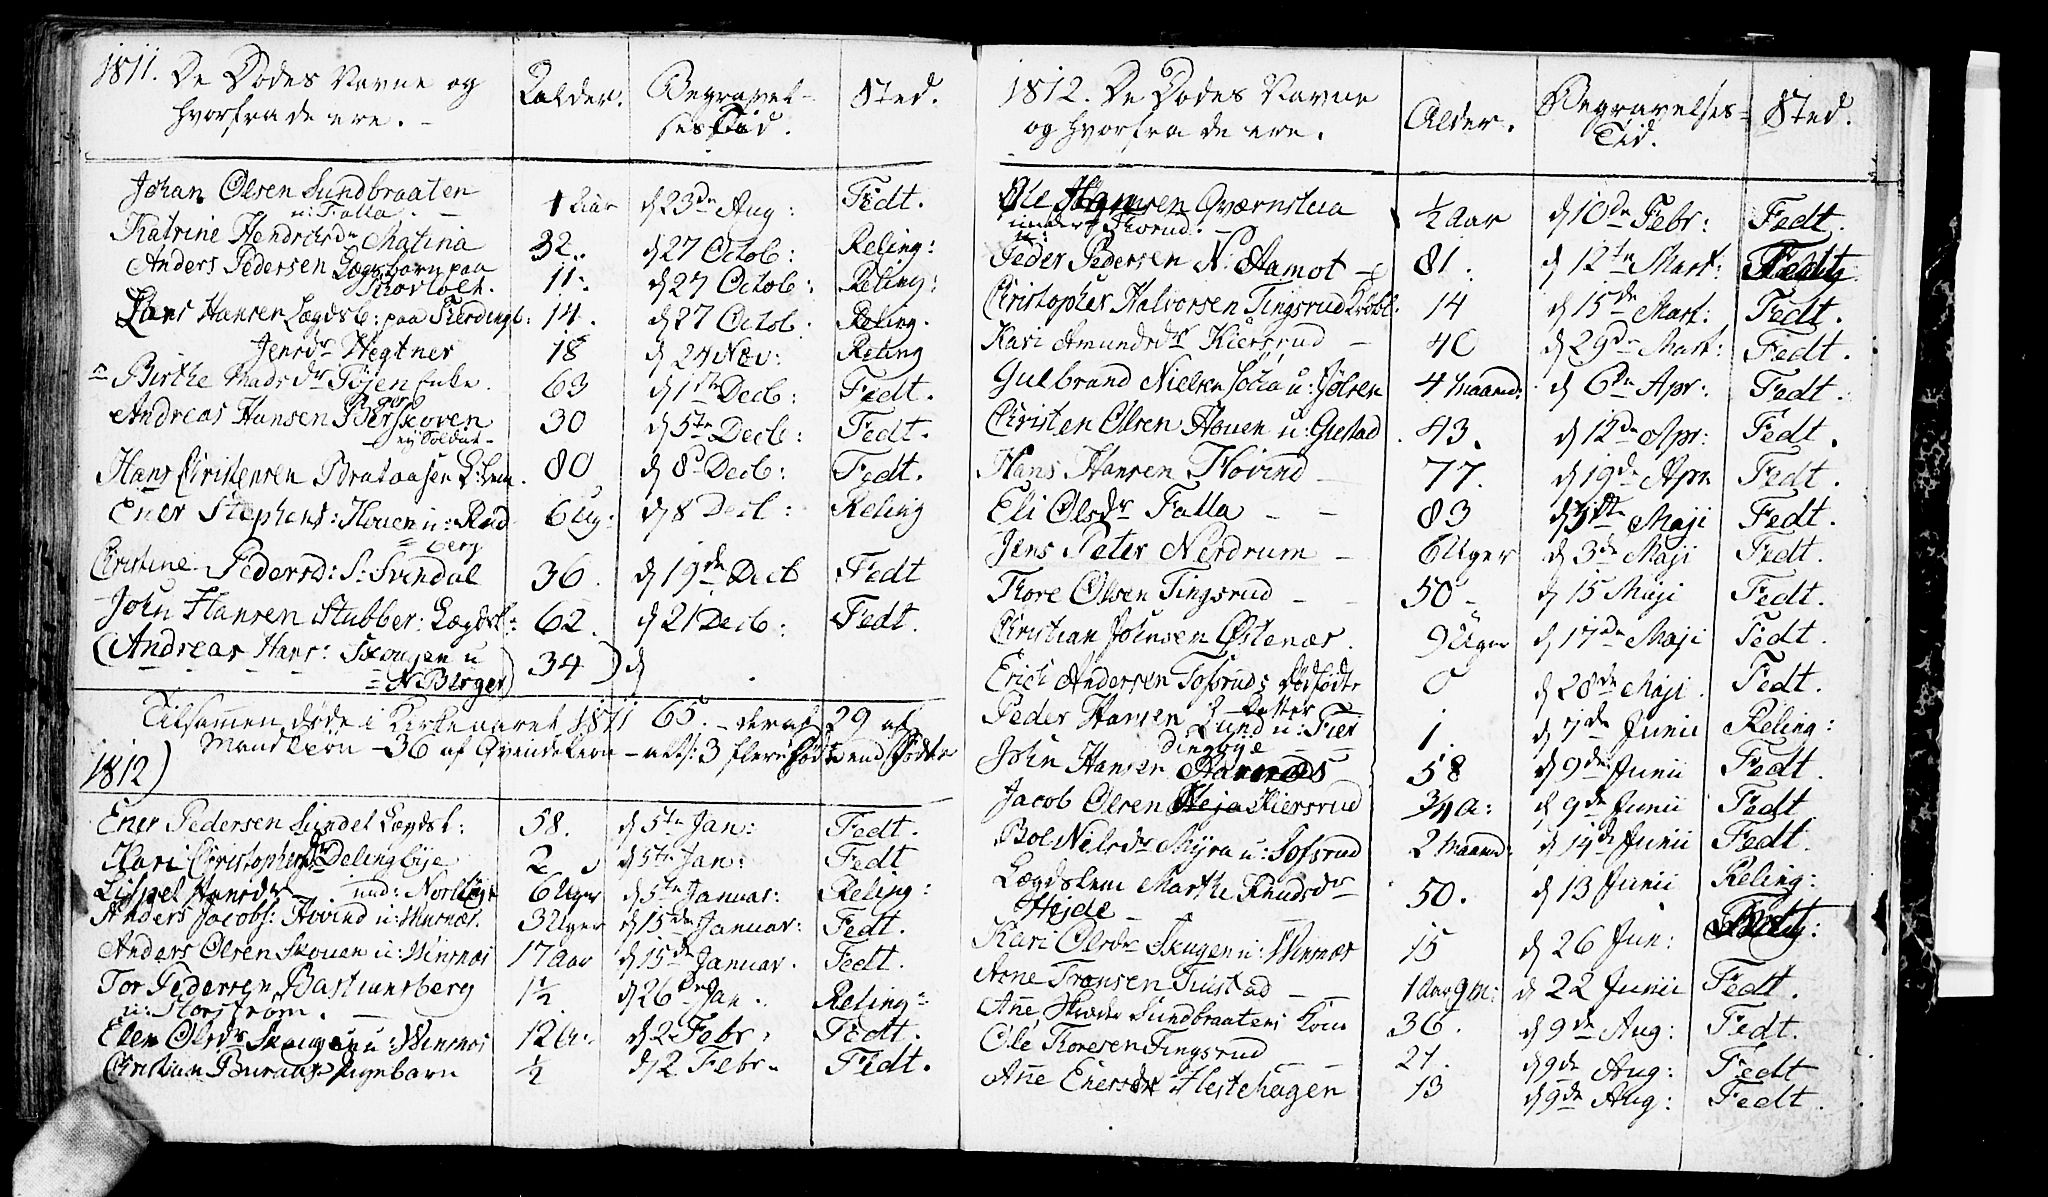 1811. De Dødes Navne og
hvorfra de ere. -
Alder.
Begravel-
ses Tid.
Sted.
Johan Olsen Sundbraaten
u: Falla. -
1 Aar d 23de Aug: Fedt.
Katrine Hendrichsdr Matina 32. d 27 Octob: Reling:
Anders Pedersen Lægsbarn paa 11. d 27 Octob: Reling:
Lars Hansen Lægdsb: paa Fierdingb: 14. d 27 Octob. Reling.
Jensdr Vegtner 18 d 24 Nov: Reling
Birthe Madsdr Töjen Enke. 63 d 1ste Decb: Fedt.
Andreas Hansen Berskoven 30 d 5te Decb: Fedt.
ny Soldat -
Hans Christensen Brataasen L:lem. 80 d 8d Decb: Fedt.
Ener Stephens: Houen u: Rud 6 Ug: d 8 Decb: Reling
= berg
Christine Pedersd: S: Svindal 36. d 19de Decb Fedt
John Hansen Stubber: Lægdsl: 62. d 21 Decb: Fedt.
(Andreas Hans: Skougen u 34 ) d
= N Berger)
Tilsammen døde i Kirkeaaret 1811 65. - deraf 29 af
Mandkiøn - 36 af Qvindekiøn - alts: 3 flere fødte end døde
1812)
Ener Pedersen Sundet Lægdsl: 58. d 5te Jan: Fedt.
Kari Christophersdr Delingbye 2 d 5te Jan: Fedt
Lispet Hansdr und: Nordbye 6 Uger d 5te Januar: Reling:
Anders Jacobs: Hovind u: Winsnæs. 3 Uger d 15de Januar: Fedt.
Anders Olsen Skouen u: Winsnæs 17 Aar d 15de Januar. Fedt.
Tor Pedersen Bastiansberg 1½ d 26de Jan. Reling:
u: Storstrøm.
Elen Olsdr Skougen u: Winsnæs 12 A: d 2 Febr: Fedt.
Christian Buraas Pigebarn ½ d 2 Febr. Fedt.
1812. De Dødes Navne
og hvorfra de ere.
Alder.
Begravelses-
Tid.
Sted.
Ole Hansen Qværnstua ½ Aar d 10de Febr: Fedt.
under Thorud.
Peder Pedersen N. Hamot 81. d 12te Mart:
Christopher Halvorsen Tingsrud 14 d 15de Mart: Fedt.
Kari Amundsdr Kiersrud - 40 d 29de Mart: Fedt.
Gulbrand Nielsen u: Jølsen 4 Maaned: d 6de Apr: Fedt.
Christen Olsen Houen u: Giestad. 43. d 12de Apr: Fedt.
Hans Hansen Hovind - 77. d 19de Apr. Fedt.
Eli Olsdr Falla - - 83 Maji Fedt.
Jens Peter Nerdrum - 6 Uger d 3de Maji Fedt.
Thore Olsen Tingsrud - - 50 - d 15 Maji Fedt.
Christian Johnsen Østenæs. 9 Uger d 17de Maji Fedt.
Erich Andersen Tofsruds dødfødte 0 d 28de Maji. Fedt.
Datter
Peder Hansen Lund u: Fier 1. d 7de Junii Reling:
dingbye
John Hansen Aarnæs 58 d 9de Junii Fedt.
Jacob Olsen Heja Kiersrud 3/4 A: d 9de Junii Fedt
Bol Nielsdr Myra u: Tofsrud 2 Maaned: d 14de Junii Fedt.
Lægdslem Marthe Knudsdr 50. d 13 Junii Reling:
Hejde -
Kari Olsdr Skugen u: Winsnæs 15 d 26 Jun:
Arne Fransen Tiustad - 1 Aar 9 M: d 22 Junii Fedt.
Ane Sundbraatens Kone 36. d 9de Aug: Fedt.
Ole Thoresen Tingsrud - - 21. d 9de Aug: Fedt
Ane Enersdr Hestehagen 13 d 9de Aug: Fedt.